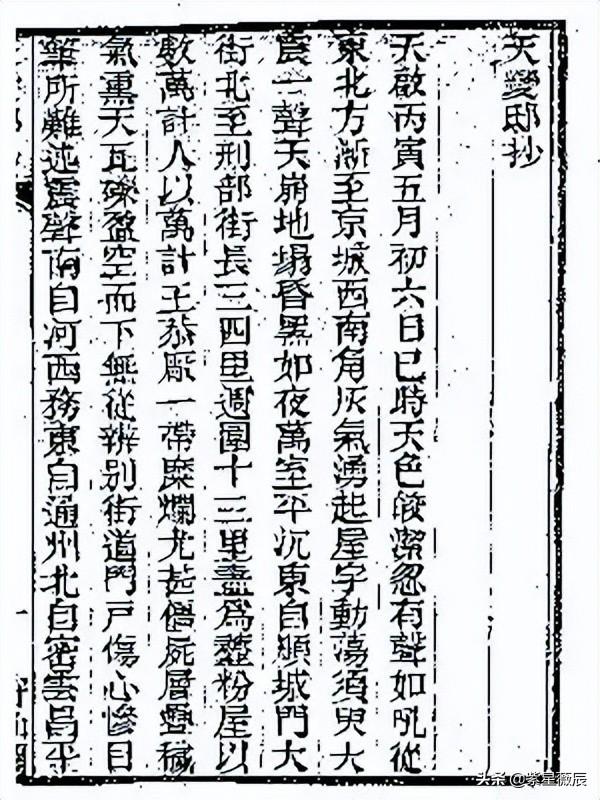 天變邸抄
天啟丙寅五月初六日巳時天色皎潔忽有聲如吼從
東北方漸至京城西南角灰氣湧起屋宇動蕩須臾大
震一聲天崩地塌昏黑如夜萬室平沉東自順城門大
街北至刑部街長三四里週圍十三里盡爲虀粉屋以
數萬計人以萬計王恭廠一帶糜爛尤甚僵屍層疊穢
氣熏天瓦礫盈空而下無從辨別街道門戶傷心慘目
筆所難述震聲南自河西務東自通州北自密雲昌平
头条 @紫星薇辰